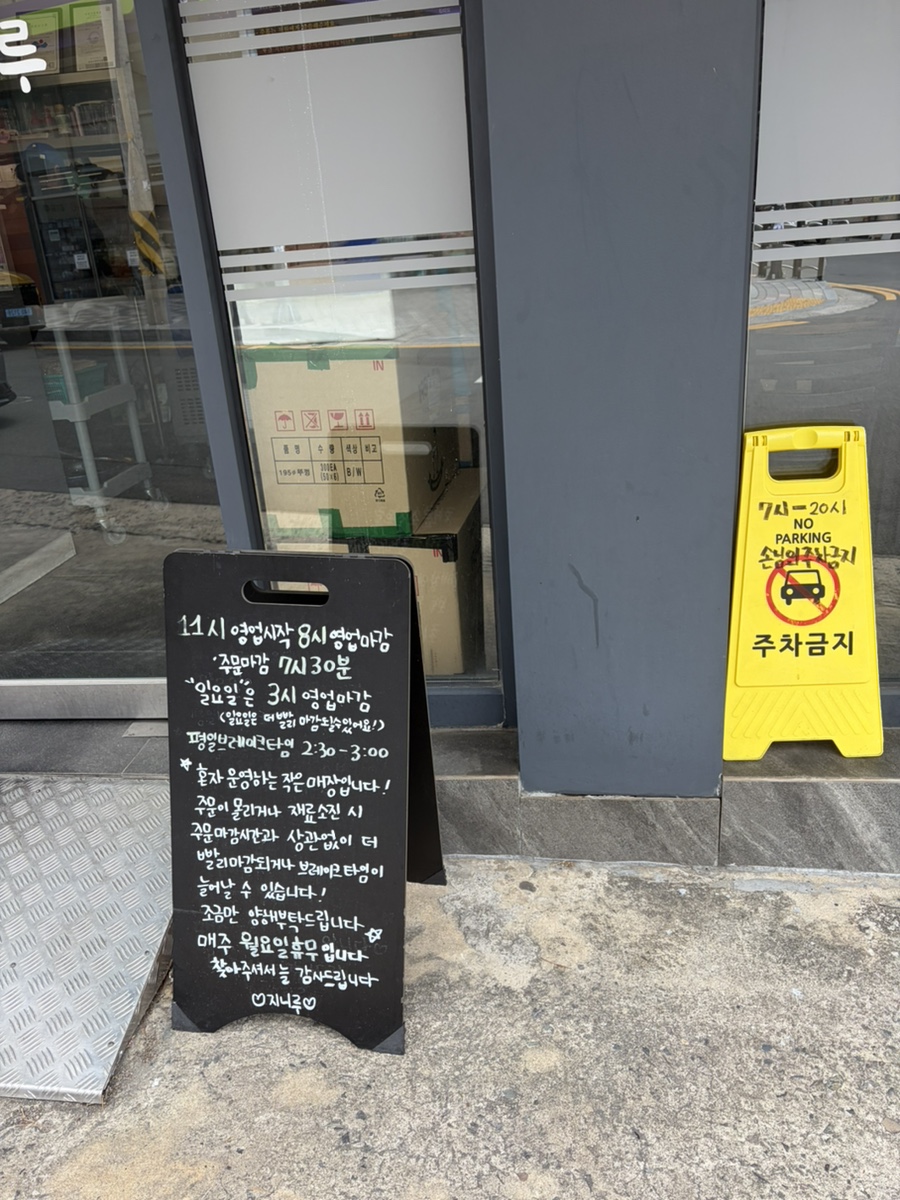 루
IN
품 명 수 량 색상 비고
195ø뚜껑 300EA (50×6) B/W
IN
11시 영업시작 8시영업마감
주문마감 7시30분
"일요일"은 3시 영업마감
(일요일은 더빨리 마감될수있어요!)
평일브레이크타임 2:30-3:00
혼자 운영하는 작은 매장입니다!
주문이 몰리거나 재료소진 시
주문마감시간과 상관없이 더
빨리마감되거나 브레이크타임이
늘어날 수 있습니다!
조금만 양해부탁드립니다
매주 월요일휴무입니다
찾아주셔서 늘 감사드립니다
♡지니루♡
7시-20시
NO
PARKING
손님외주차금지
주차금지